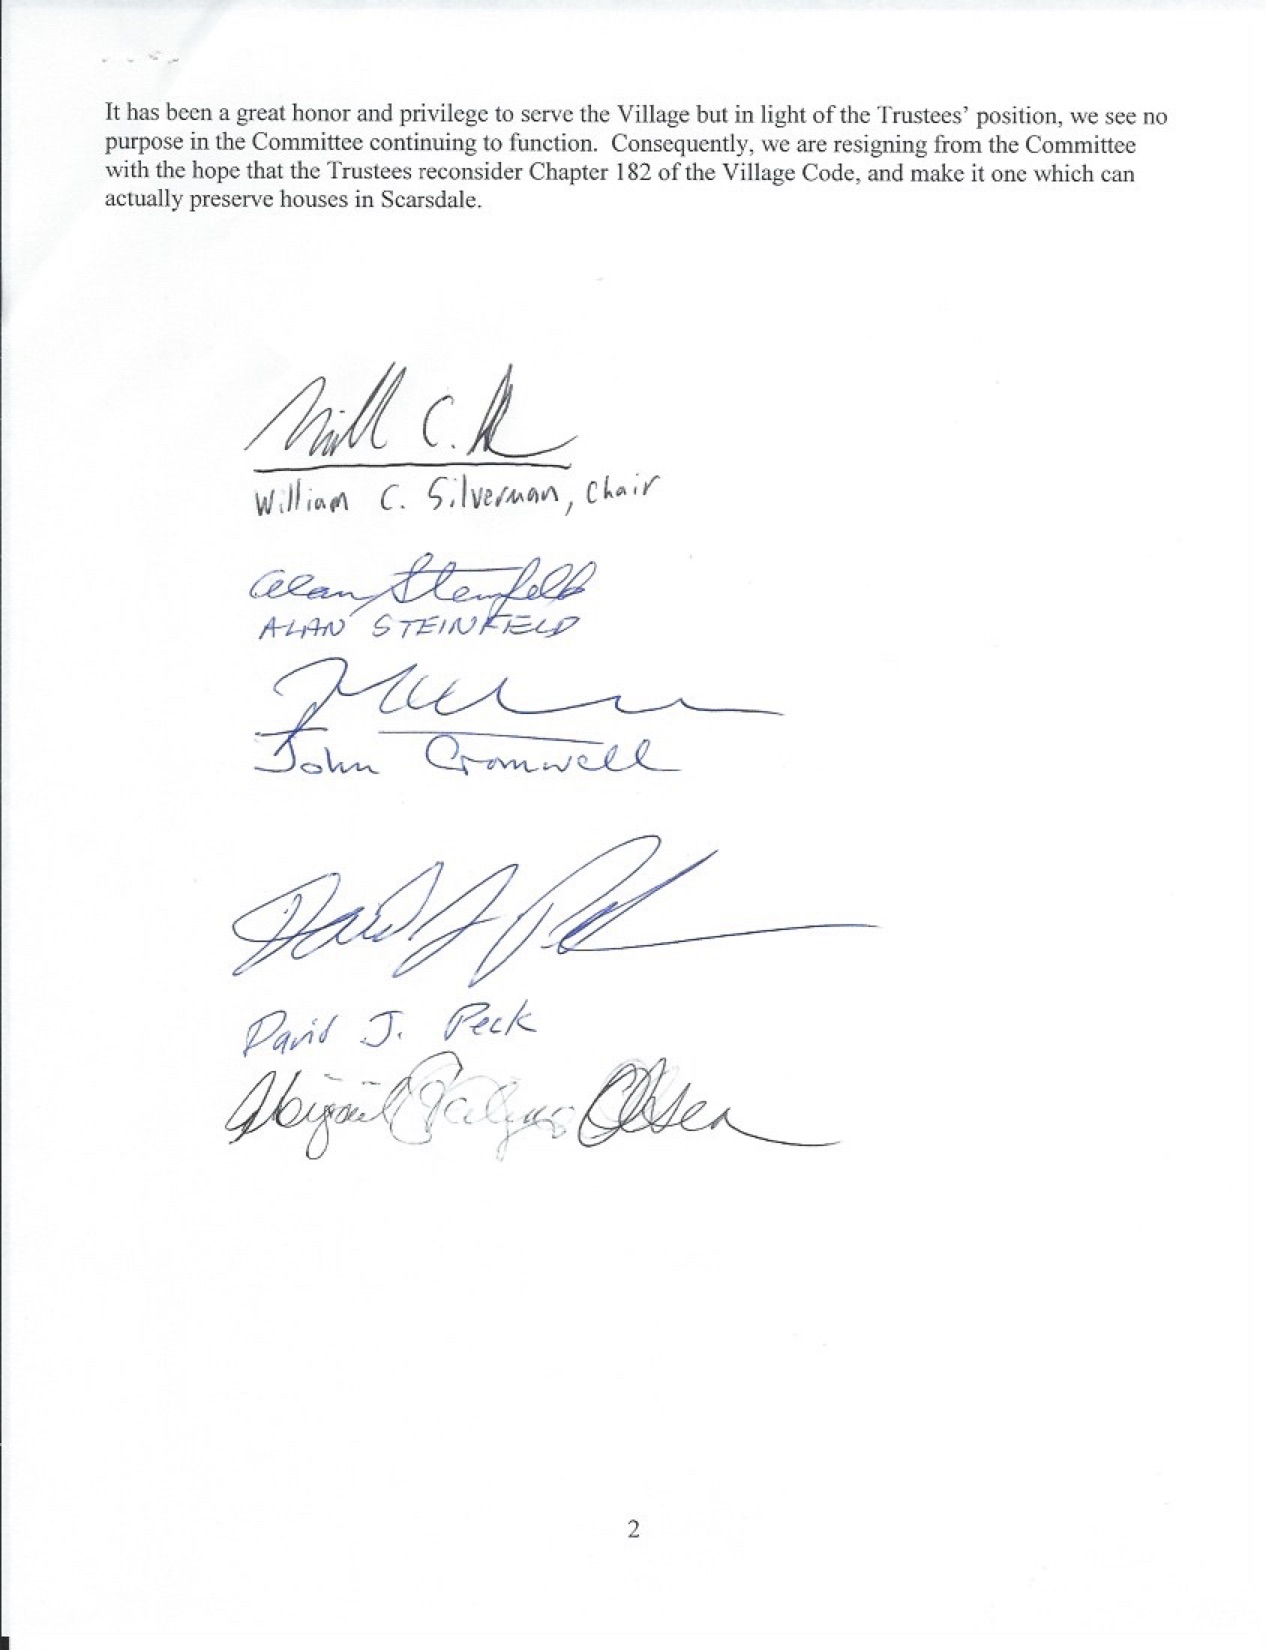 It has been a great honor and privilege to serve the Village but in light of the Trustees’ position, we see no
purpose in the Committee continuing to function.  Consequently, we are resigning from the Committee
with the hope that the Trustees reconsider Chapter 182 of the Village Code, and make it one which can
actually preserve houses in Scarsdale.
C.
William C. Silverman, Chair
Alan Steinfeld
ALAN STEINFELD
John Cromwell
David J. Peck
David J. Peck
Abigail Olsen
2